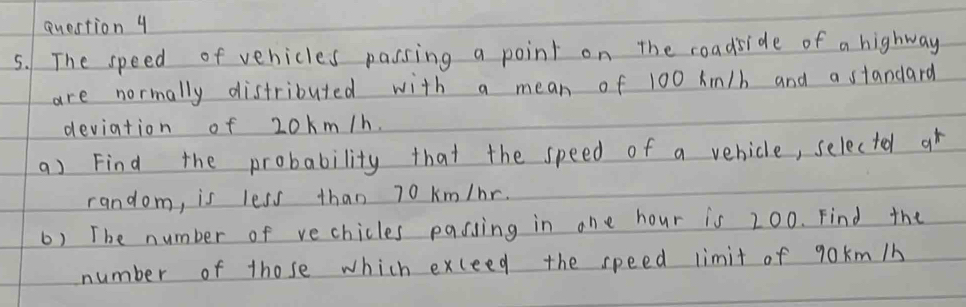 Question 4
5. The speed of vehicles passing a point on the roadside of a highway
are normally distributed with a mean of 100 km/h and a standard
deviation of 20km/h.
a) Find the probability that the speed of a vehicle, selected at
random, is less than 70 km/hr.
b) The number of vechicles passing in one hour is 200. Find the
number of those which exceed the speed limit of 90km/h